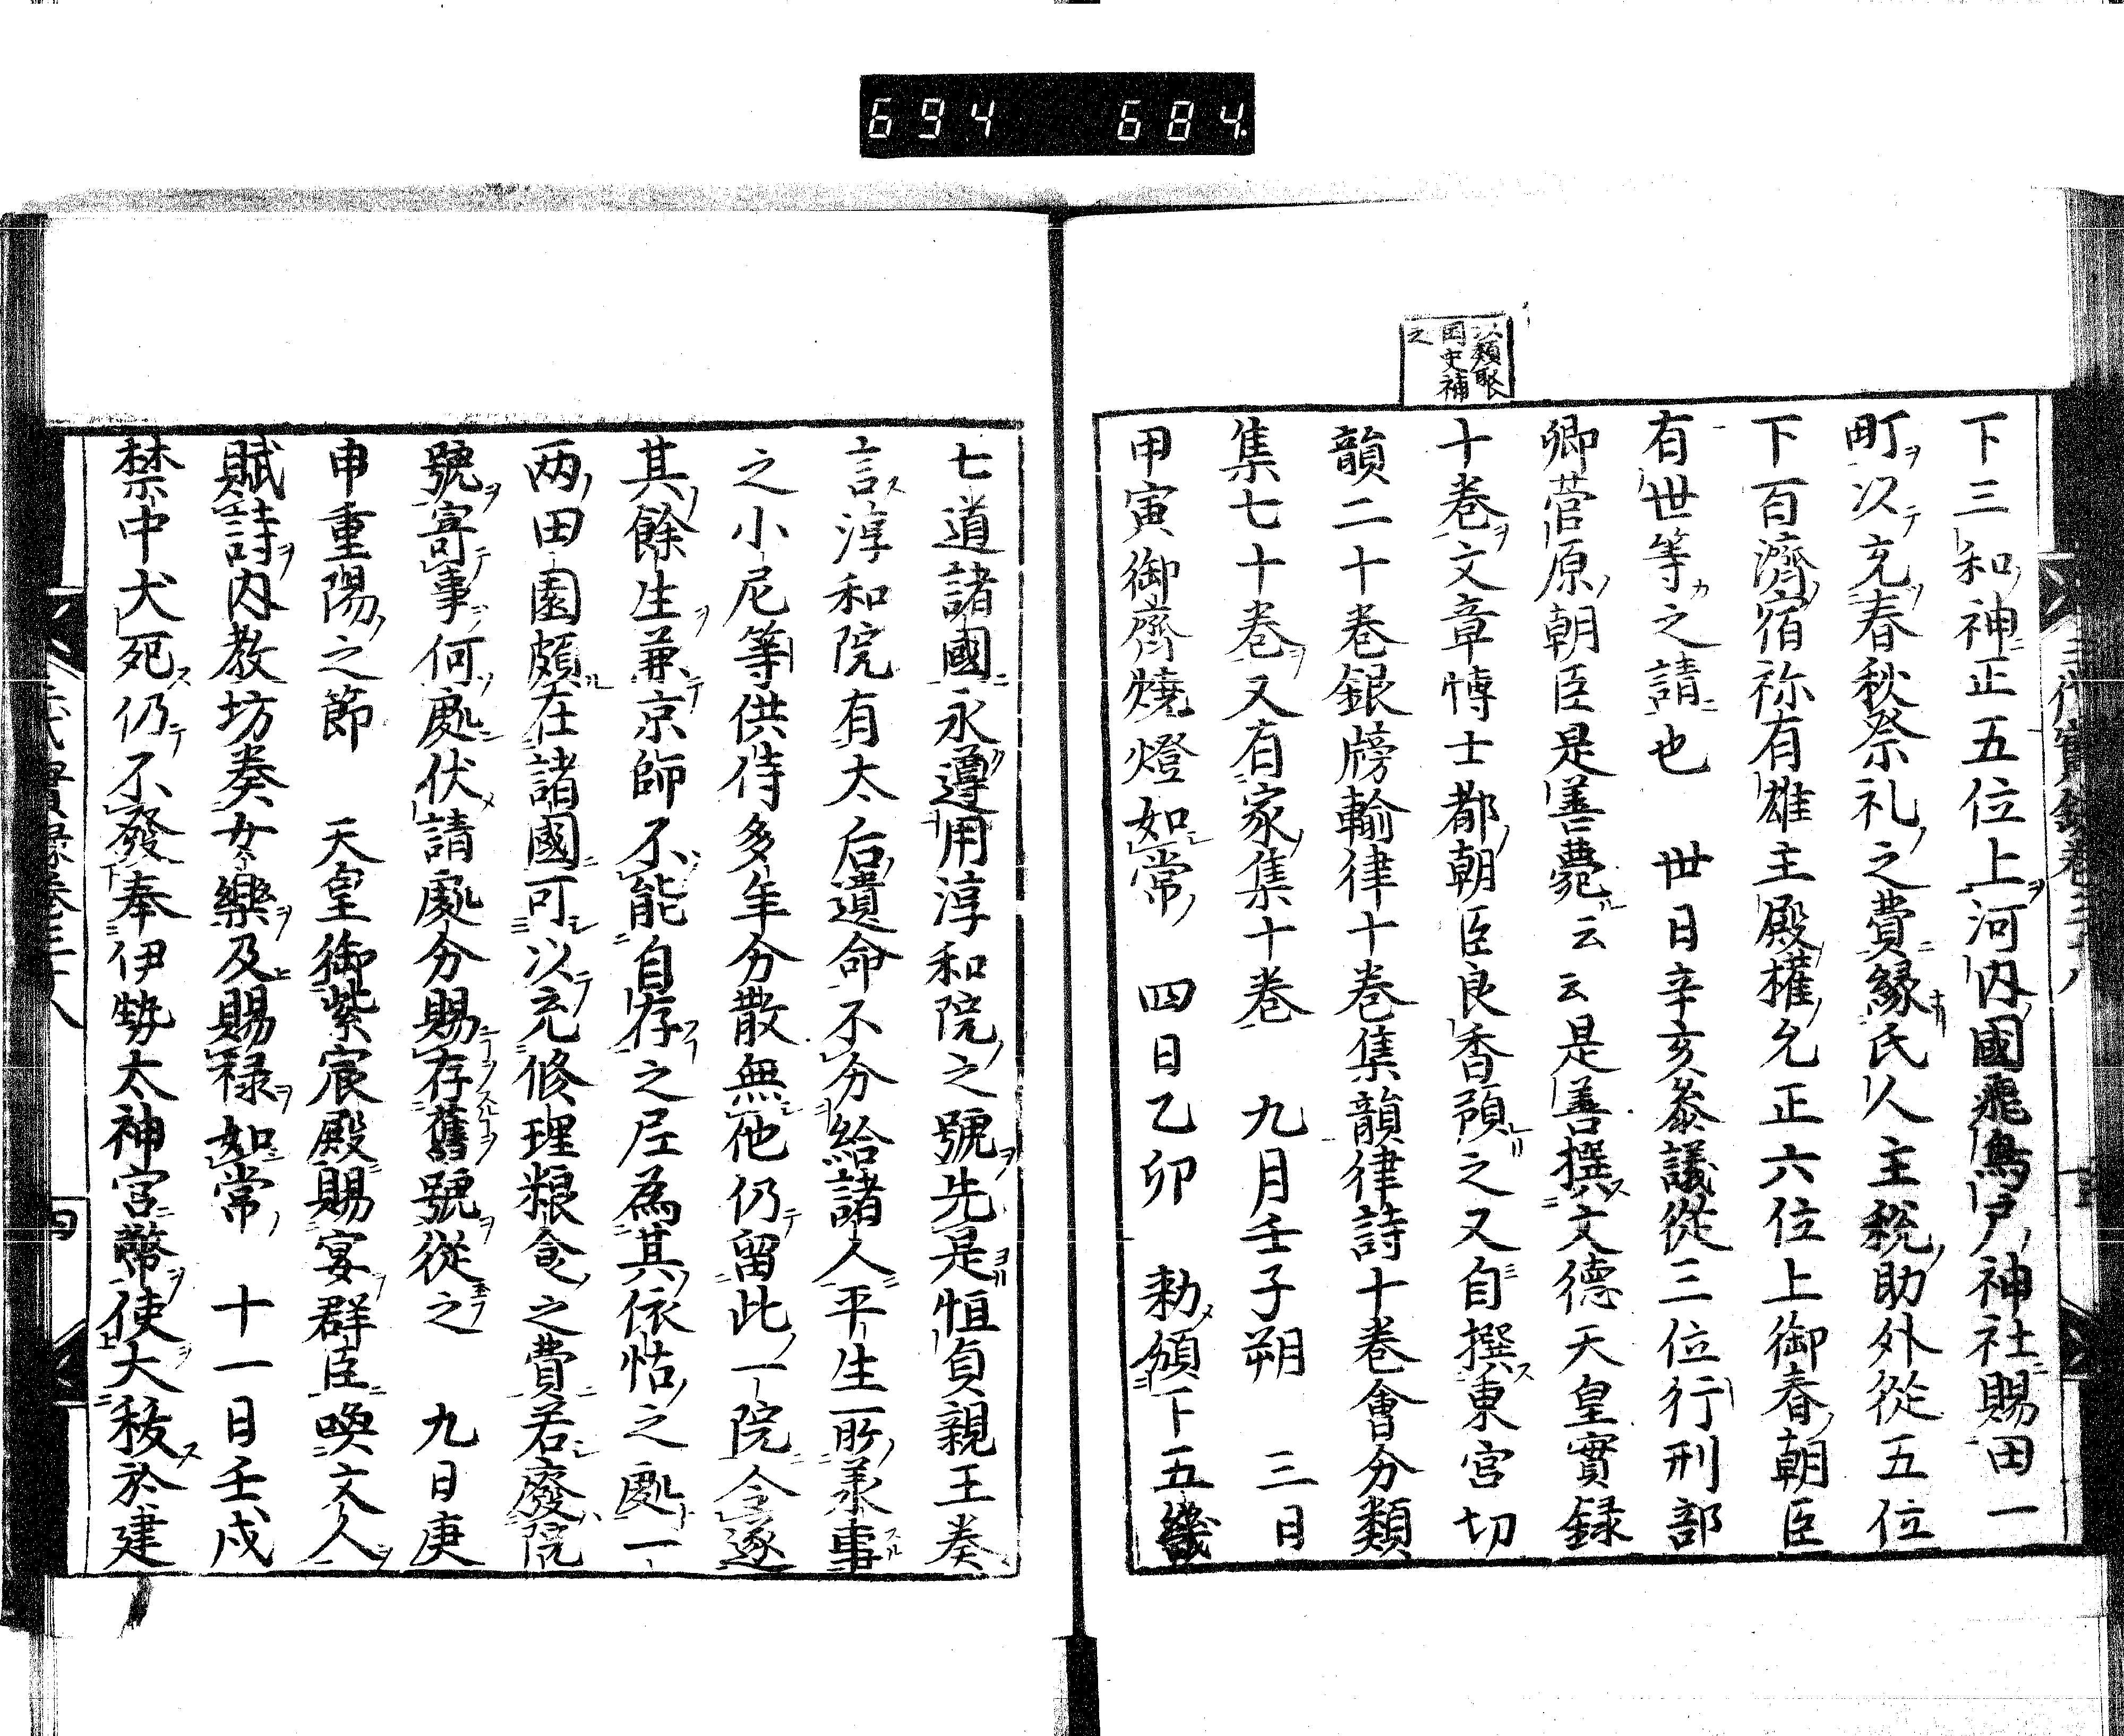 694 684.
以類聚
国史補
之
下三和神正五位上河内國飛鳥戸神社賜田一
町以充春秋祭礼之費縁氏人主税助外從五位
下百濟宿祢有雄主殿權允正六位上御春朝臣
有世等之請也 卅日辛亥叅議從三位行刑部
卿菅原朝臣是善薨云云是善撰文德天皇實録
十巻文章博士都朝臣良香預之又自撰東宮切
韻二十巻銀牓輸律十巻集韻律詩十巻會分類
集七十巻又有家集十巻 九月壬子朔 三日
甲寅御齋燒燈如常 四日乙卯 勅頒下五畿
七道諸國永遵用淳和院之號先是恒貞親王奏
言淳和院有太后遺命不分給諸人平生所羕事
之小尼等供侍多年分散無他仍留此一院令逐
其餘生兼京師不能自存之尼為其依怙之處一
两田園頗在諸國可以充修理粮食之費若廢院
號寄事何處伏請處分賜存舊號從之 九日庚
申重陽之節 天皇御紫宸殿賜宴群臣喚文人
賦詩内教坊奏女樂及賜祿如常 十一日壬戌
禁中犬死仍不發奉伊勢太神宮幣使大秡於建